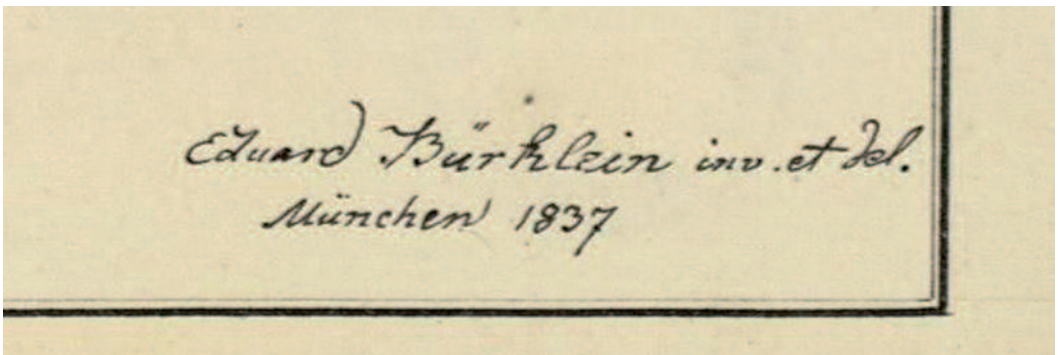 Eduard Bürklein inv. et del.
München 1837